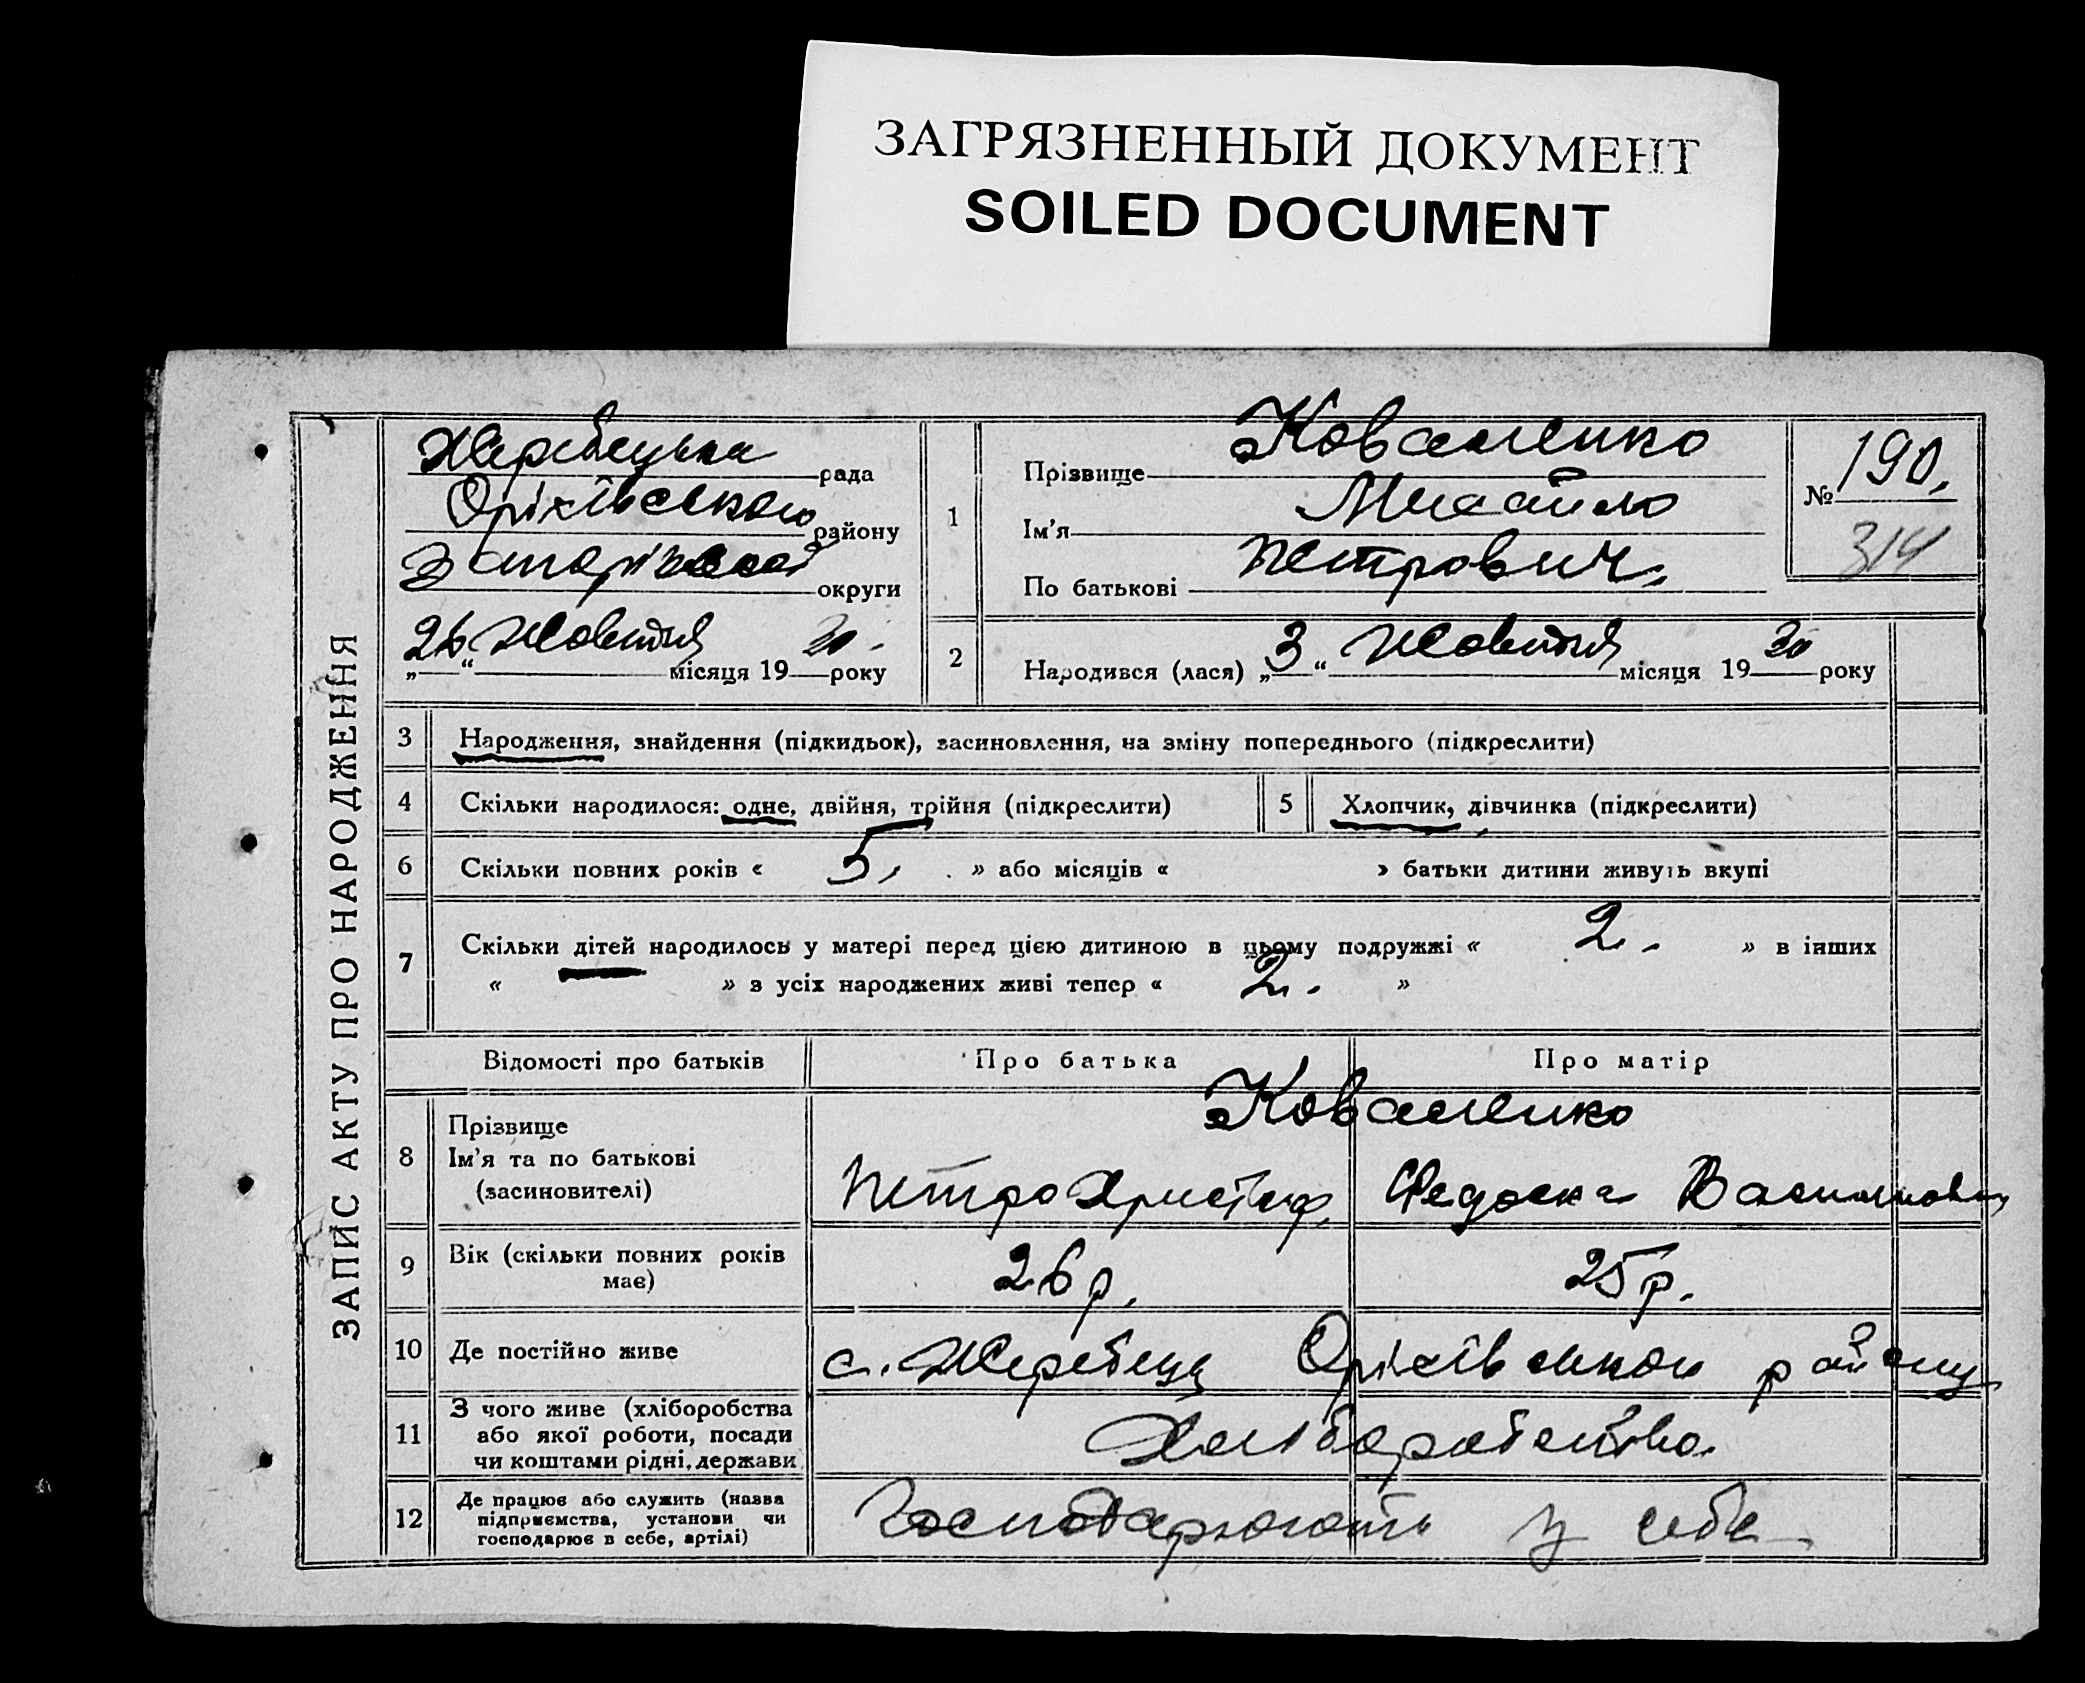 ЗАГРЯЗНЕННЫЙ ДОКУМЕНТ
SOILED DOCUMENT
ЗАПИС АКТУ ПРО НАРОДЖЕННЯ
Жеребецька рада
Оріхівського району
округи
26 „ “ Жовтня місяця 19 30 року
1
Прізвище Коваленко
Ім'я Михайло
По батькові Петрович.
№ 190.
314
2
Народився (лася) „ 3 “ Жовтня місяця 19 30 року
3 Народження, знайдення (підкидьок), засиновлення, на зміну попереднього (підкреслити)
4 Скільки народилося: одне, двійня, трійня (підкреслити)
5 Хлопчик, дівчинка (підкреслити)
6 Скільки повних років « 5. » або місяців « » батьки дитини живуть вкупі
7 Скільки дітей народилось у матері перед цією дитиною в цьому подружжі « 2. » в інших
« » з усіх народжених живі тепер « 2. »
Відомості про батьків Про батька Про матір
Коваленко
8 Прізвище
Ім'я та по батькові
(засиновителі)
Петро Христоф. Федоска
9 Вік (скільки повних років
має)
26 р. 25 р.
10 Де постійно живе с. Жеребець Оріхівського району
11 З чого живе (хліборобства
або якої роботи, посади
чи коштами рідні, держави
Хліборобства
12 Де працює або служить (назва
підприємства, установи чи
господарює в себе, артілі)
Господарюють у себе